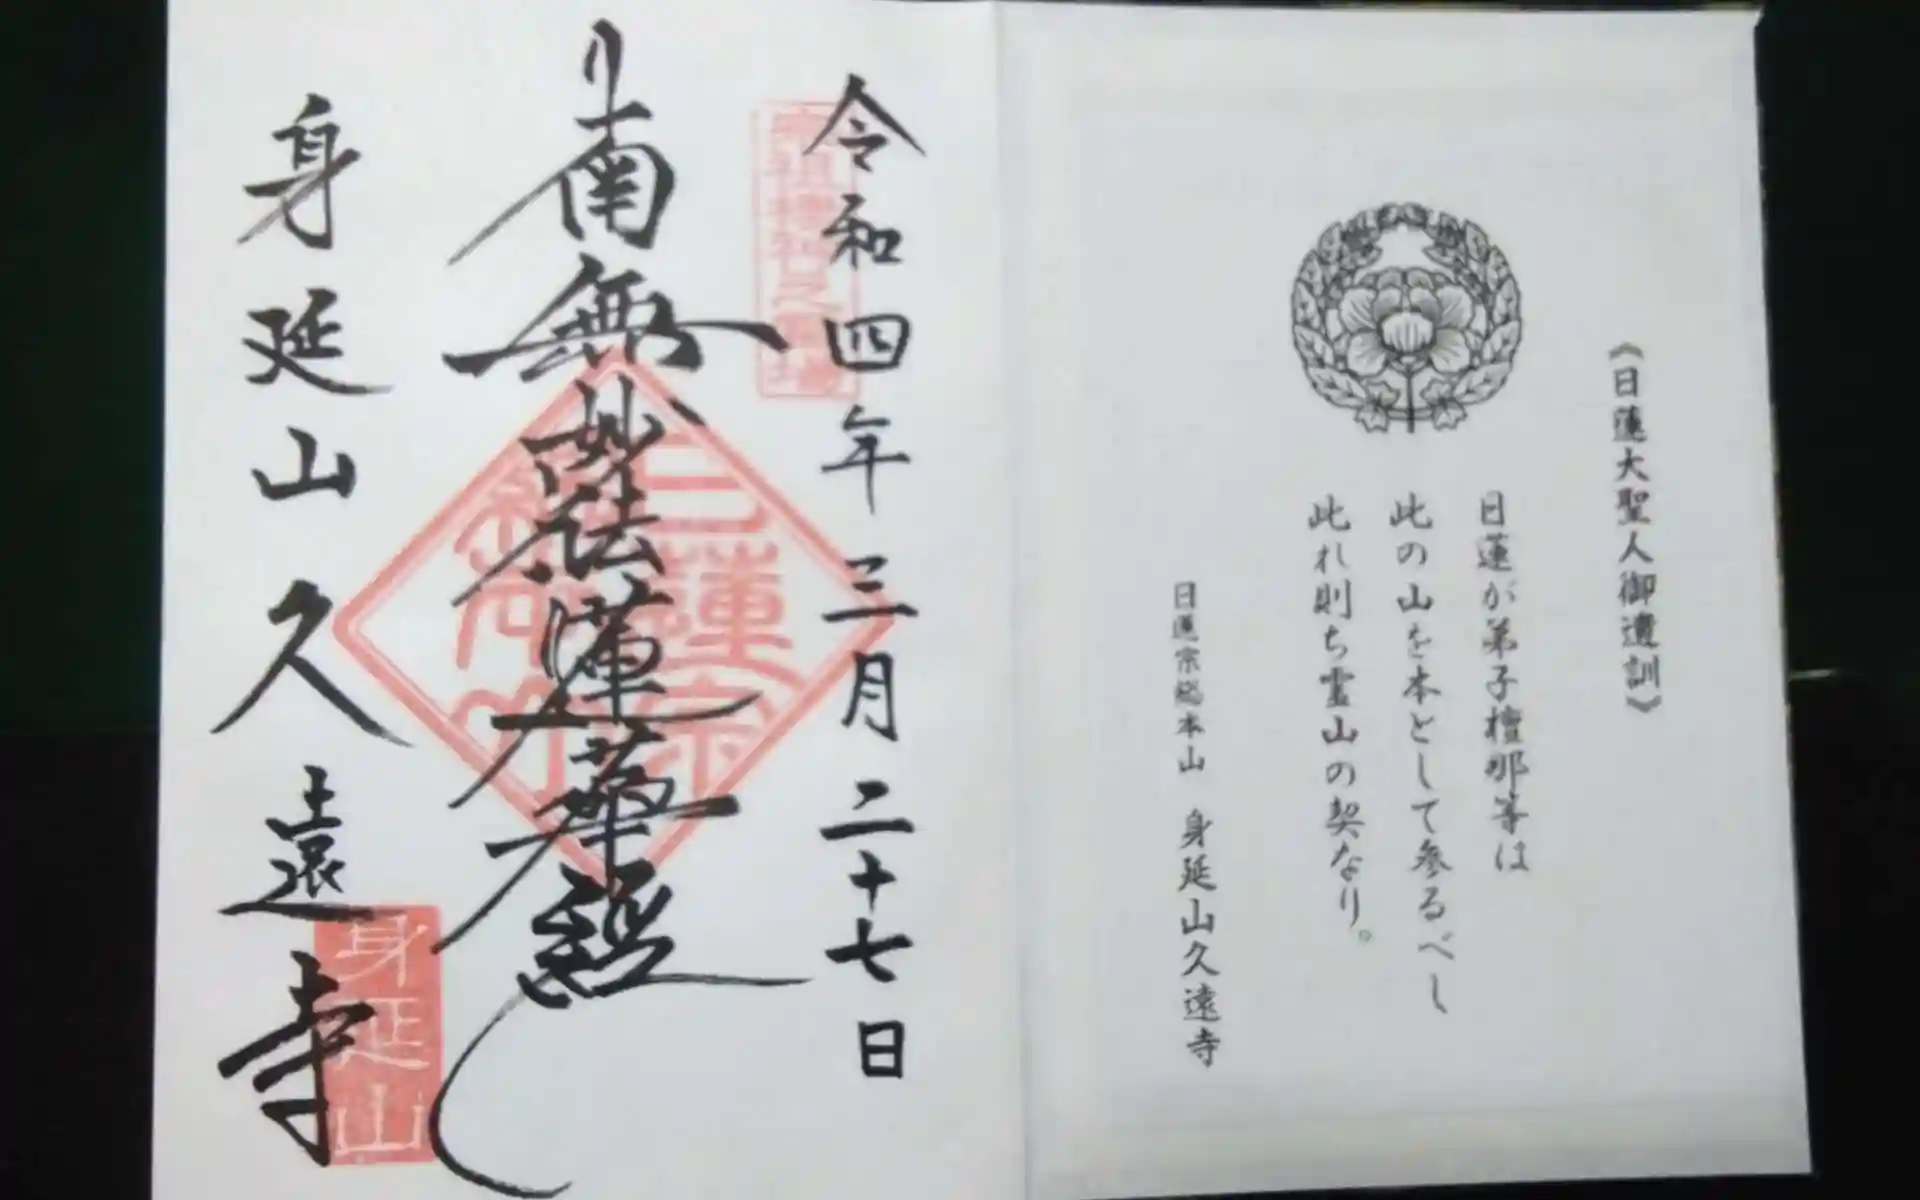 《日蓮大聖人御遺訓》
日蓮が弟子檀那等は
此の山を本として参るべし
此れ則ち霊山の契なり。
日蓮宗総本山 身延山久遠寺
令和四年三月二十七日
南無妙法蓮華経
日蓮宗
総本山
身延山久遠寺
身延山